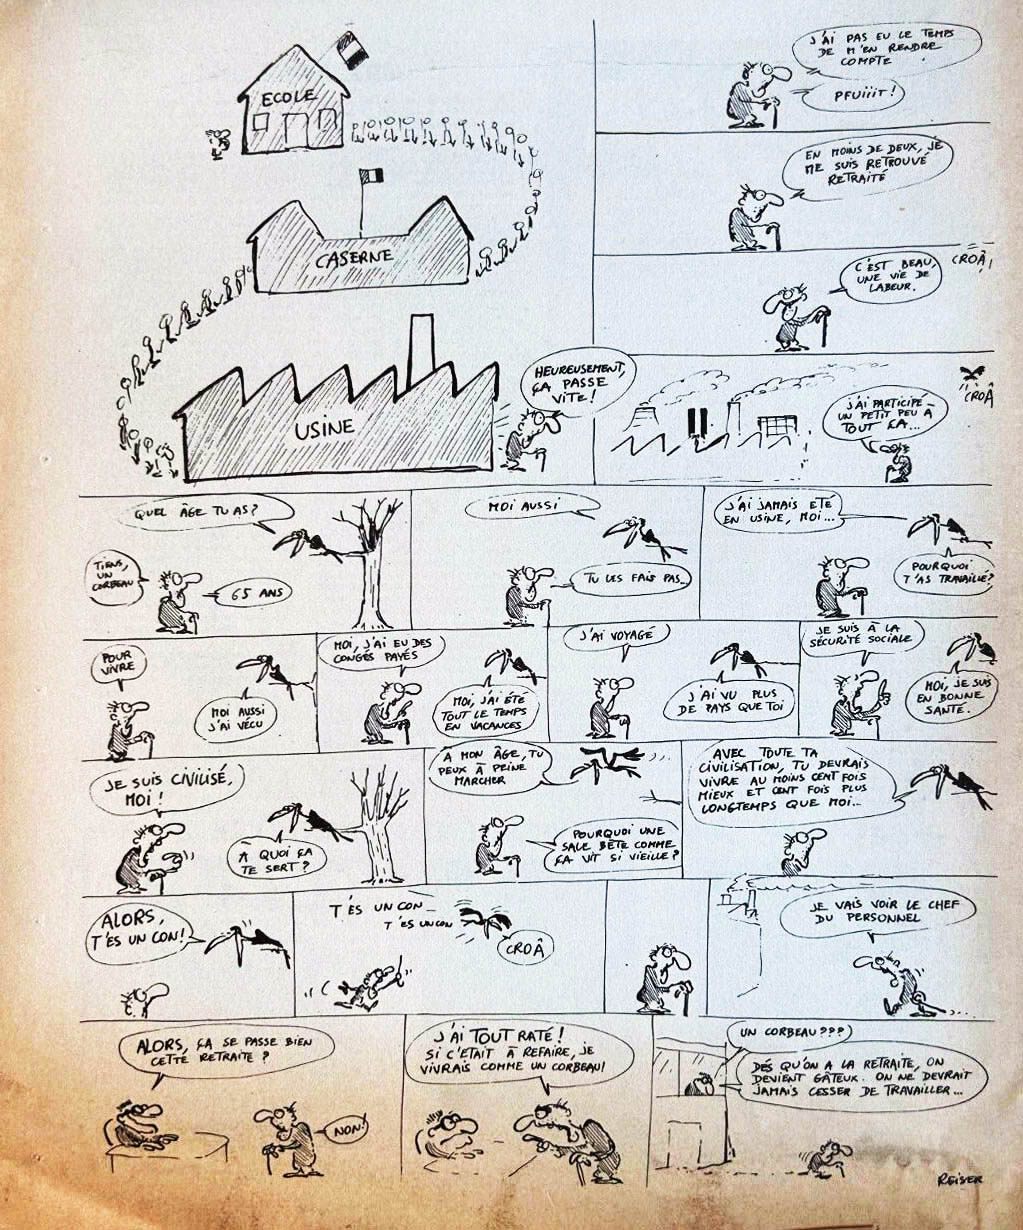 ECOLE
CASERNE
USINE
HEUREUSEMENT,
ÇA PASSE
VITE !
J'AI PAS EU LE TEMPS
DE M'EN RENDRE
COMPTE
PFUIIIT !
EN MOINS DE DEUX, JE
ME SUIS RETROUVÉ
RETRAITÉ
C'EST BEAU,
UNE VIE DE
LABEUR.
CROÂ !
J'AI PARTICIPÉ
UN PETIT PEU À
TOUT ÇA...
CROÂ
TIENS,
UN
CORBEAU
QUEL ÂGE TU AS ?
65 ANS
MOI AUSSI
TU LES FAIS PAS...
J'AI JAMAIS ETÉ
EN USINE, MOI...
POURQUOI
T'AS TRAVAILLÉ ?
POUR
VIVRE
MOI AUSSI
J'AI VÉCU
MOI, J'AI EU DES
CONGÉS PAYÉS
MOI, J'AI ÉTÉ
TOUT LE TEMPS
EN VACANCES
J'AI VOYAGÉ
J'AI VU PLUS
DE PAYS QUE TOI
JE SUIS À LA
SÉCURITÉ SOCIALE
MOI, JE SUIS
EN BONNE
SANTÉ.
JE SUIS CIVILISÉ,
MOI !
À QUOI ÇA
TE SERT ?
À MON ÂGE, TU
PEUX À PEINE
MARCHER
POURQUOI UNE
SALE BÊTE COMME
ÇA VIT SI VIEILLE ?
AVEC TOUTE TA
CIVILISATION, TU DEVRAIS
VIVRE AU MOINS CENT FOIS
MIEUX ET CENT FOIS PLUS
LONGTEMPS QUE MOI...
ALORS,
T'ES UN CON !
T'ES UN CON...
T'ES UN CON
CROÂ
JE VAIS VOIR LE CHEF
DU PERSONNEL
ALORS, ÇA SE PASSE BIEN
CETTE RETRAITE ?
NON !
J'AI TOUT RATÉ !
SI C'ETAIT À REFAIRE, JE
VIVRAIS COMME UN CORBEAU !
UN CORBEAU ???
DÈS QU'ON A LA RETRAITE, ON
DEVIENT GÂTEUX. ON NE DEVRAIT
JAMAIS CESSER DE TRAVAILLER...
REISER